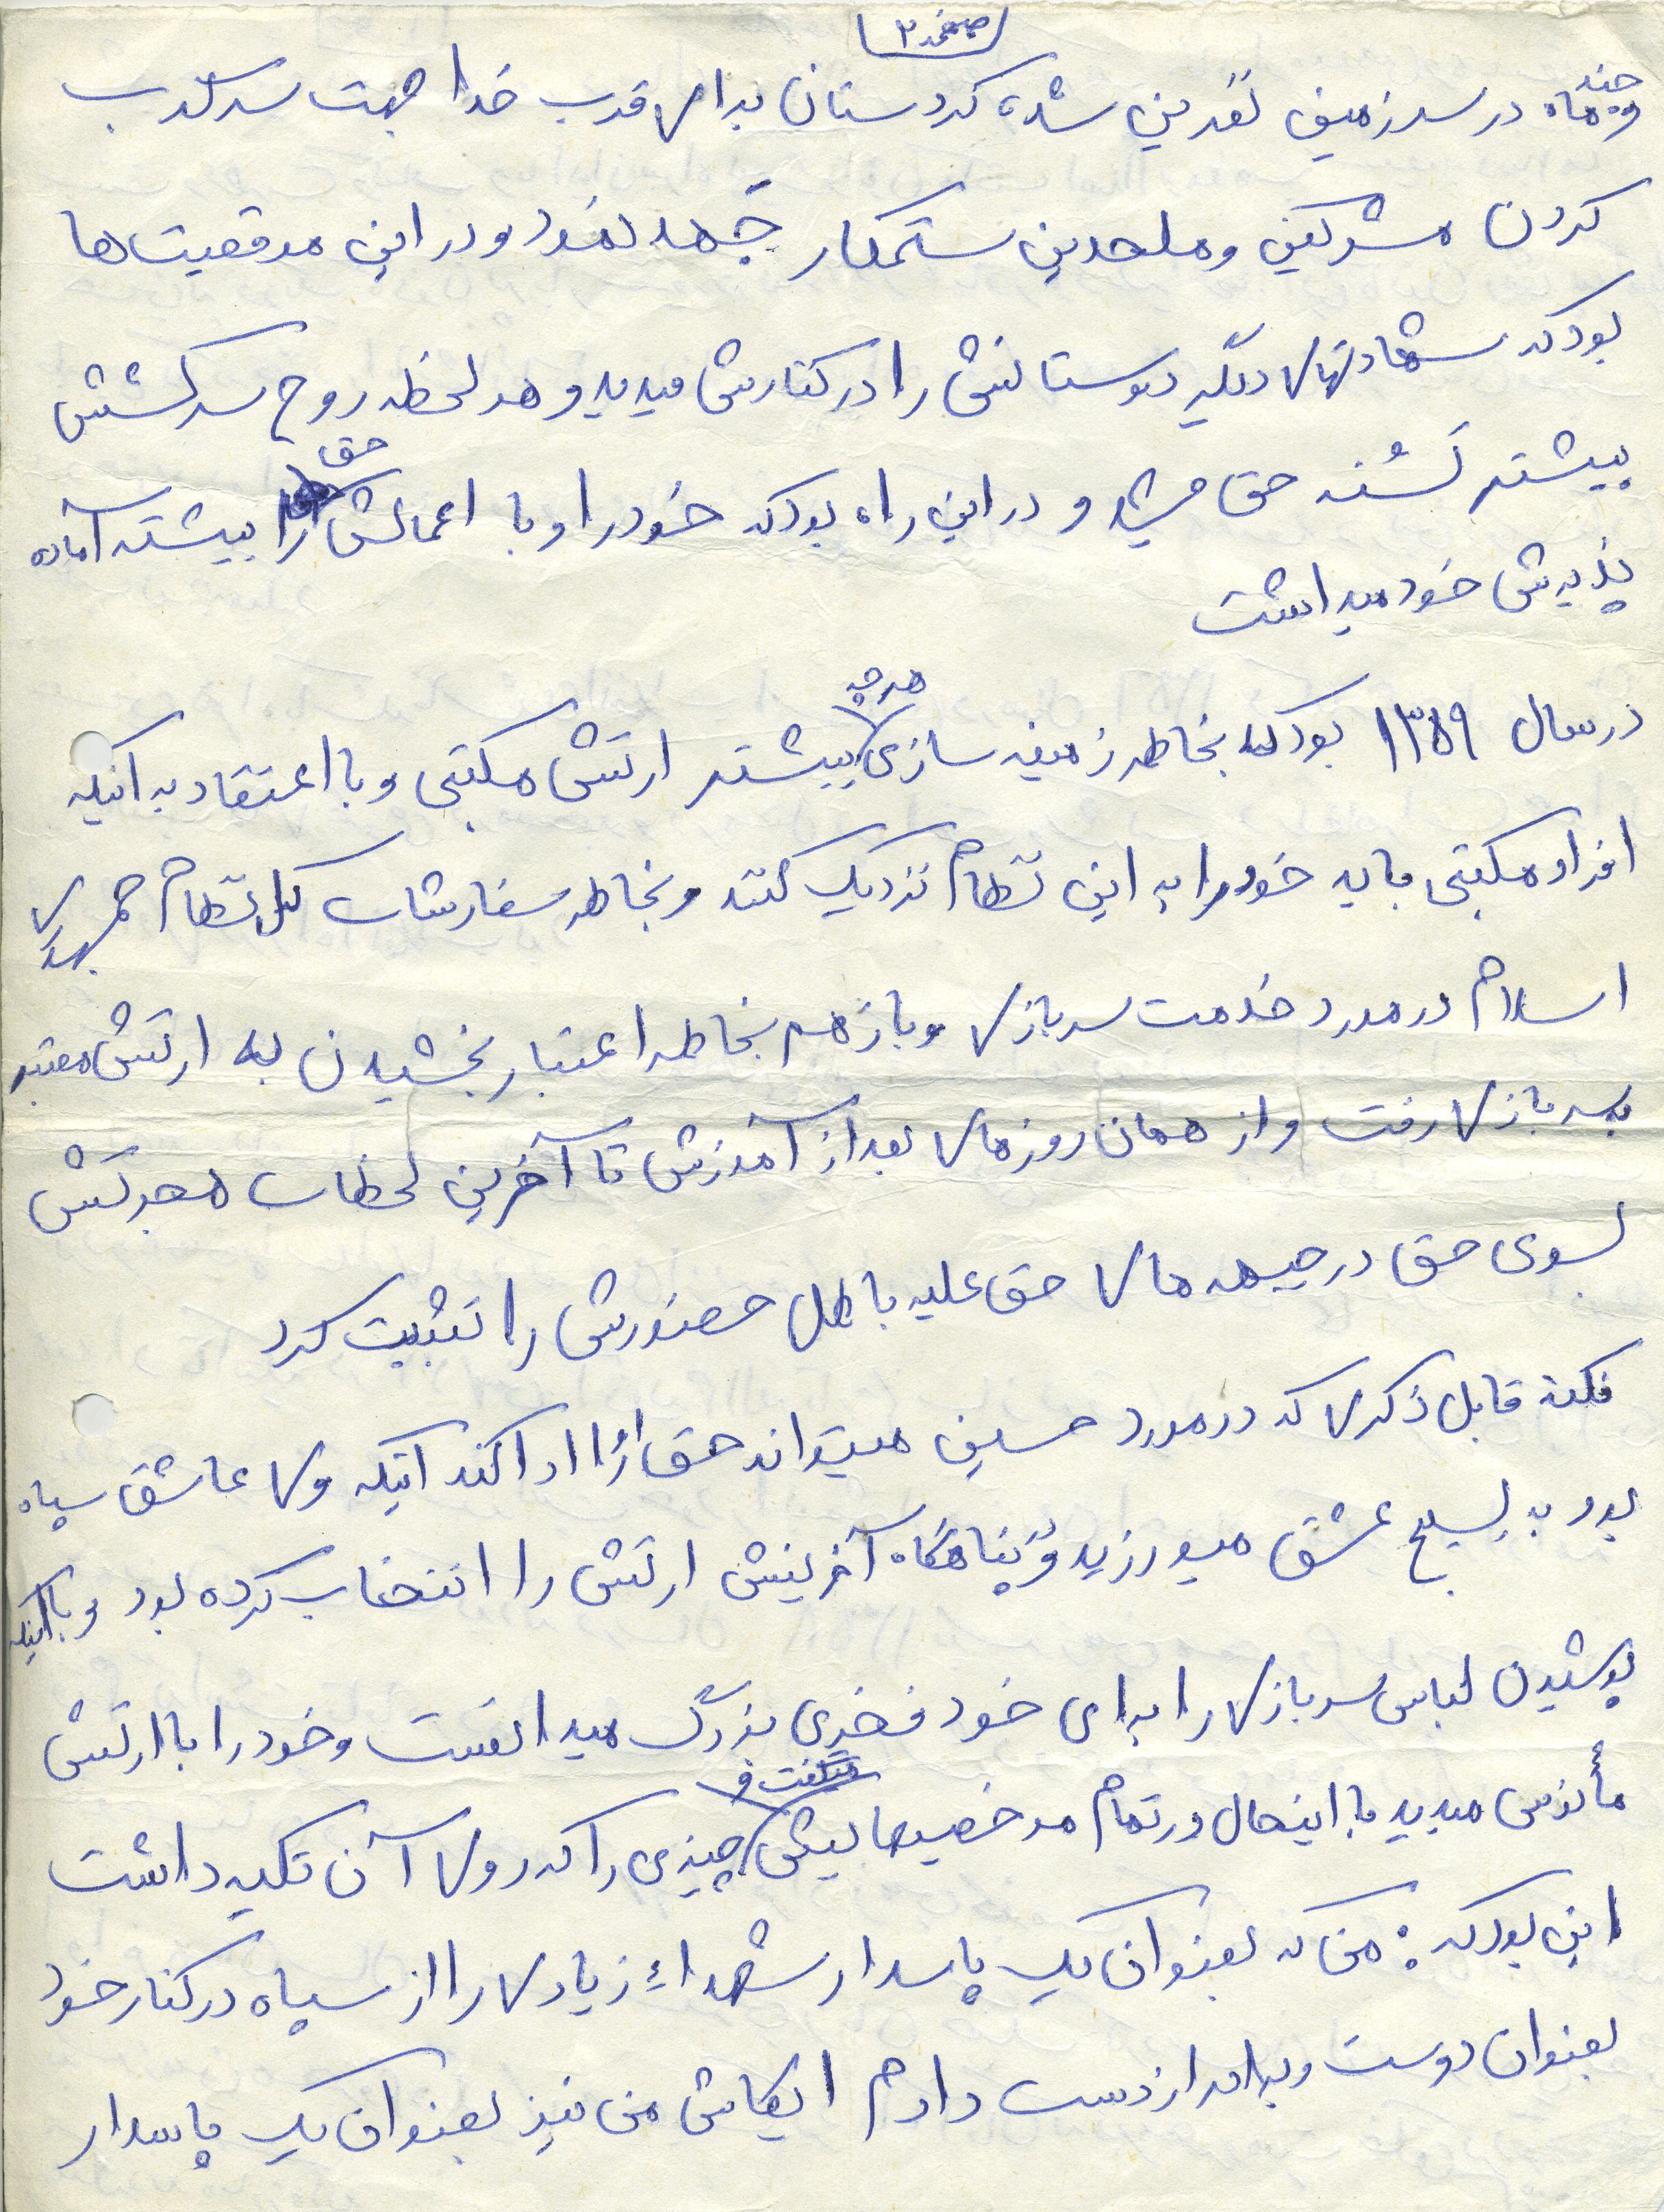 صفحه ۲
و چند ماه در سرزمین نفرین شده کردستان برای قرب خدا جهت سرکوب
کردن مشرکین و ملحدین ستمکار جَهد نمود و در این موقعیت‌ها
بود که شهادتهای دیگر دوستانش را در کنارش میدید و هر لحظه روح سرکشش
بیشتر تَشنه حق میشد و در این راه بود که خود را و با اعمالش حق را بیشتر آماده
پذیرش خود میداشت
در سال ۱۳۵۹ بود که بخاطر زمینه سازی هر چه بیشتر ارتش مکتبی و با اعتقاد به اینکه
افراد مکتبی باید خود را به این نظام نزدیک کنند و بخاطر سفارشات کل نظام جمهوری
اسلام در مورد خدمت سربازی و باز هم بخاطر اعتبار بخشیدن به ارتش معتبر
بسربازی رفت و از همان روزهای بعد از آموزش تا آخرین لحظات هجرتش
بسوی حق در جبهه های حق علیه باطل حضورش را تثبیت کرد
نکته قابل ذکری که در مورد حسین میتواند حق او را ادا کند اینکه وی عاشق سپاه
بود به بسیج عشق میورزید و پناهگاه آخرینش ارتش را انتخاب کرده بود و با اینکه
پوشیدن لباس سربازی را برای خود فخری بزرگ میدانست و خود را با ارتش
مأنوس میدید با اینحال در تمام مرخصیهایش میگفت و چیزی را که روی آن تکیه داشت
این بود که : من که بعنوان یک پاسدار شهداء زیادی را از سپاه در کنار خود
بعنوان دوست و برادر از دست دادم ایکاش من نیز بعنوان یک پاسدار